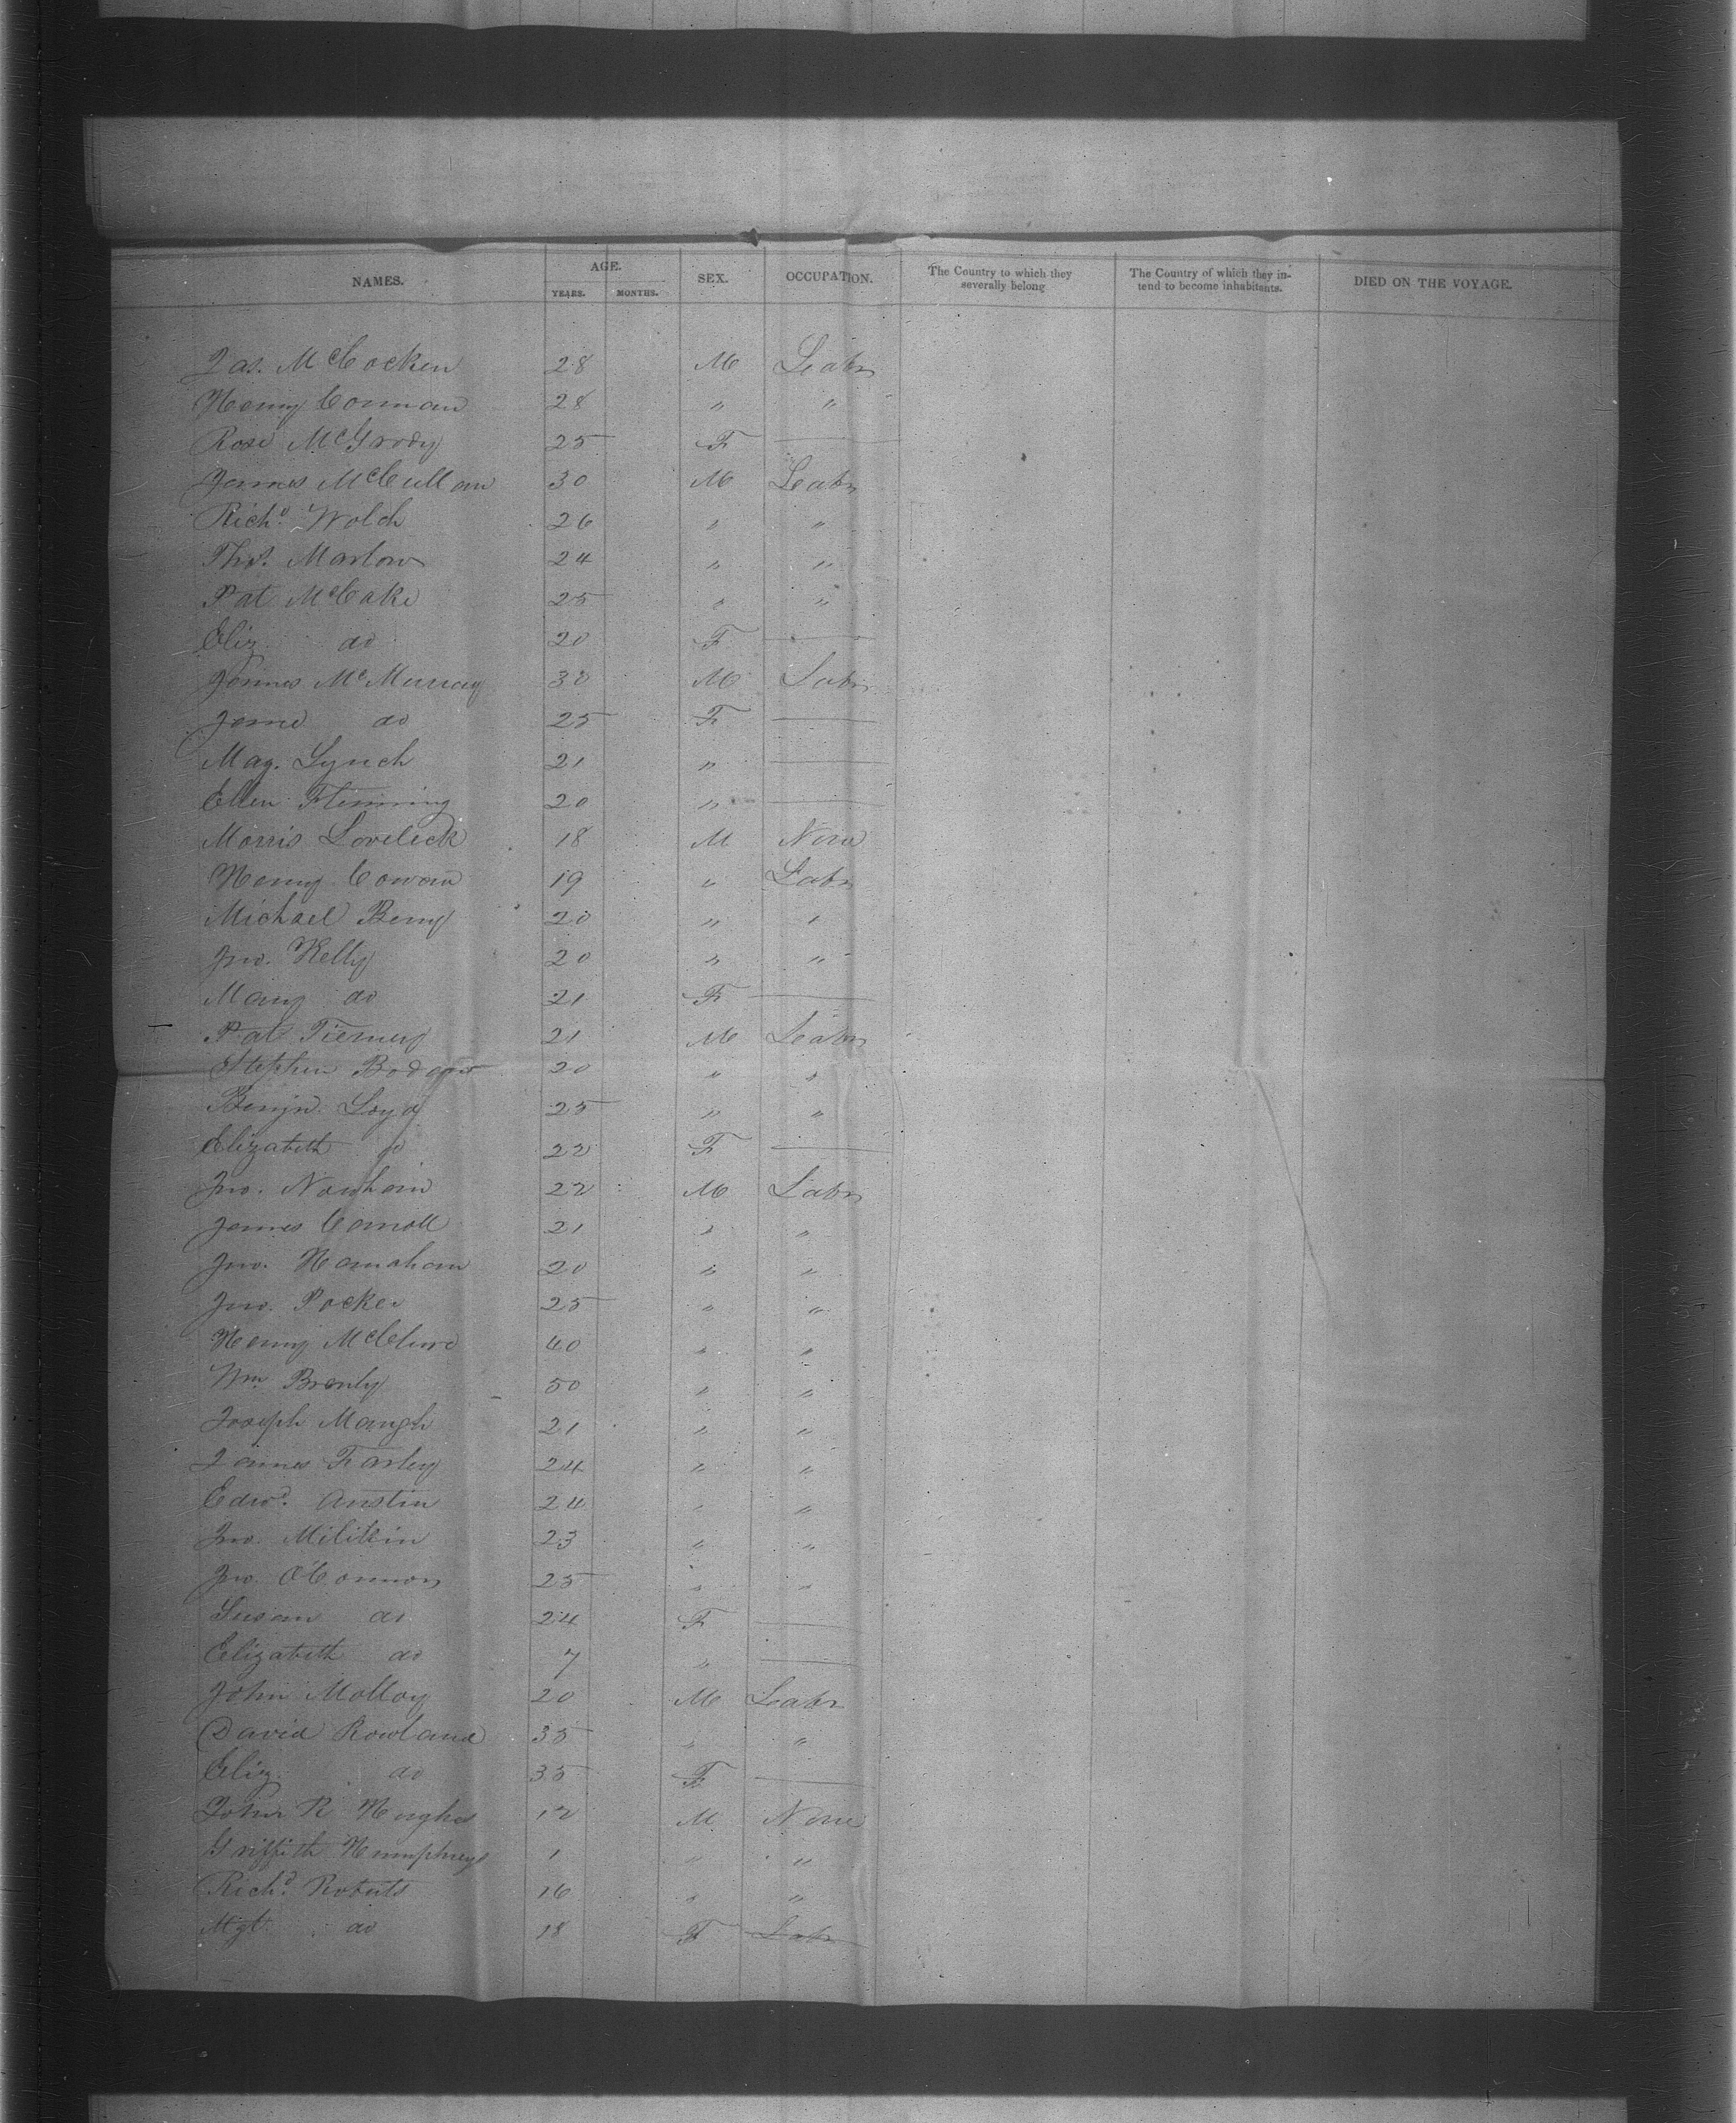 NAMES. AGE. YEARS. MONTHS. SEX. OCCUPATION. The Country to which they severally belong The Country of which they intend to become inhabitants. DIED ON THE VOYAGE.
Jas. McCocken 28 M Labr
Henry Connan 28 " "
Rose McGrody 25 F —
James McCullan 30 M Labr
Richd. Wolch 26 " "
Thos. Marlow 24 " "
Pat McCake 25 " "
Eliz do 20 F —
James McMurray 30 M Labr
Jane do 25 F —
Mag. Lynch 21 " —
Ellen Flemming 20 " —
Morris Loveleck 18 M None
Henry Cowan 19 " Labr
Michael Berry 20 " "
Jno. Kelly 20 " "
Mary do 21 F —
Pat Tierney 21 M Labr
Stephen 20 " "
Benjn. Loyd 25 " "
Elizabeth do 22 F —
Jno. Nowhain 22 M Labr
James Carroll 21 " "
Jno. Hanahan 20 " "
Jno. Pocker 25 " "
Henry McClure 40 " "
Wm Brenly 50 " "
Joseph Mangh 21 " "
James Farley 24 " "
Edwd. Austin 24 " "
Jno. Milikin 23 " "
Jno. O'Connor 25 " "
Susan do 24 F —
Elizabeth do 7 " —
John Molloy 20 M Labr
David Rowland 35 " "
Eliz. do 35 F —
John R Hughes 12 M None
Griffith Humphreys 1 " "
Richd. Roberts 16 " "
Mgt. do 18 F Labr